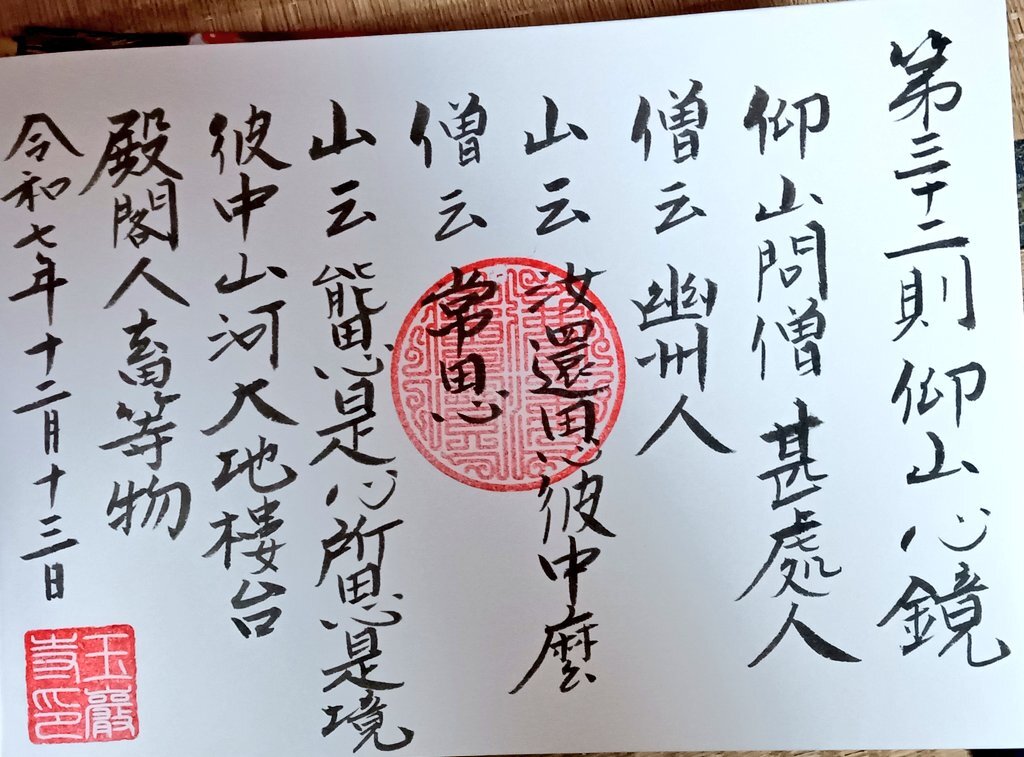 第三十二則仰山心鏡
仰山問僧甚處人
僧云幽州人
山云汝還思彼中麼
僧云常思
山云能思是心所思是境
彼中山河大地樓台
殿閣人畜等物
令和七年十二月十三日
玉巖
寺印